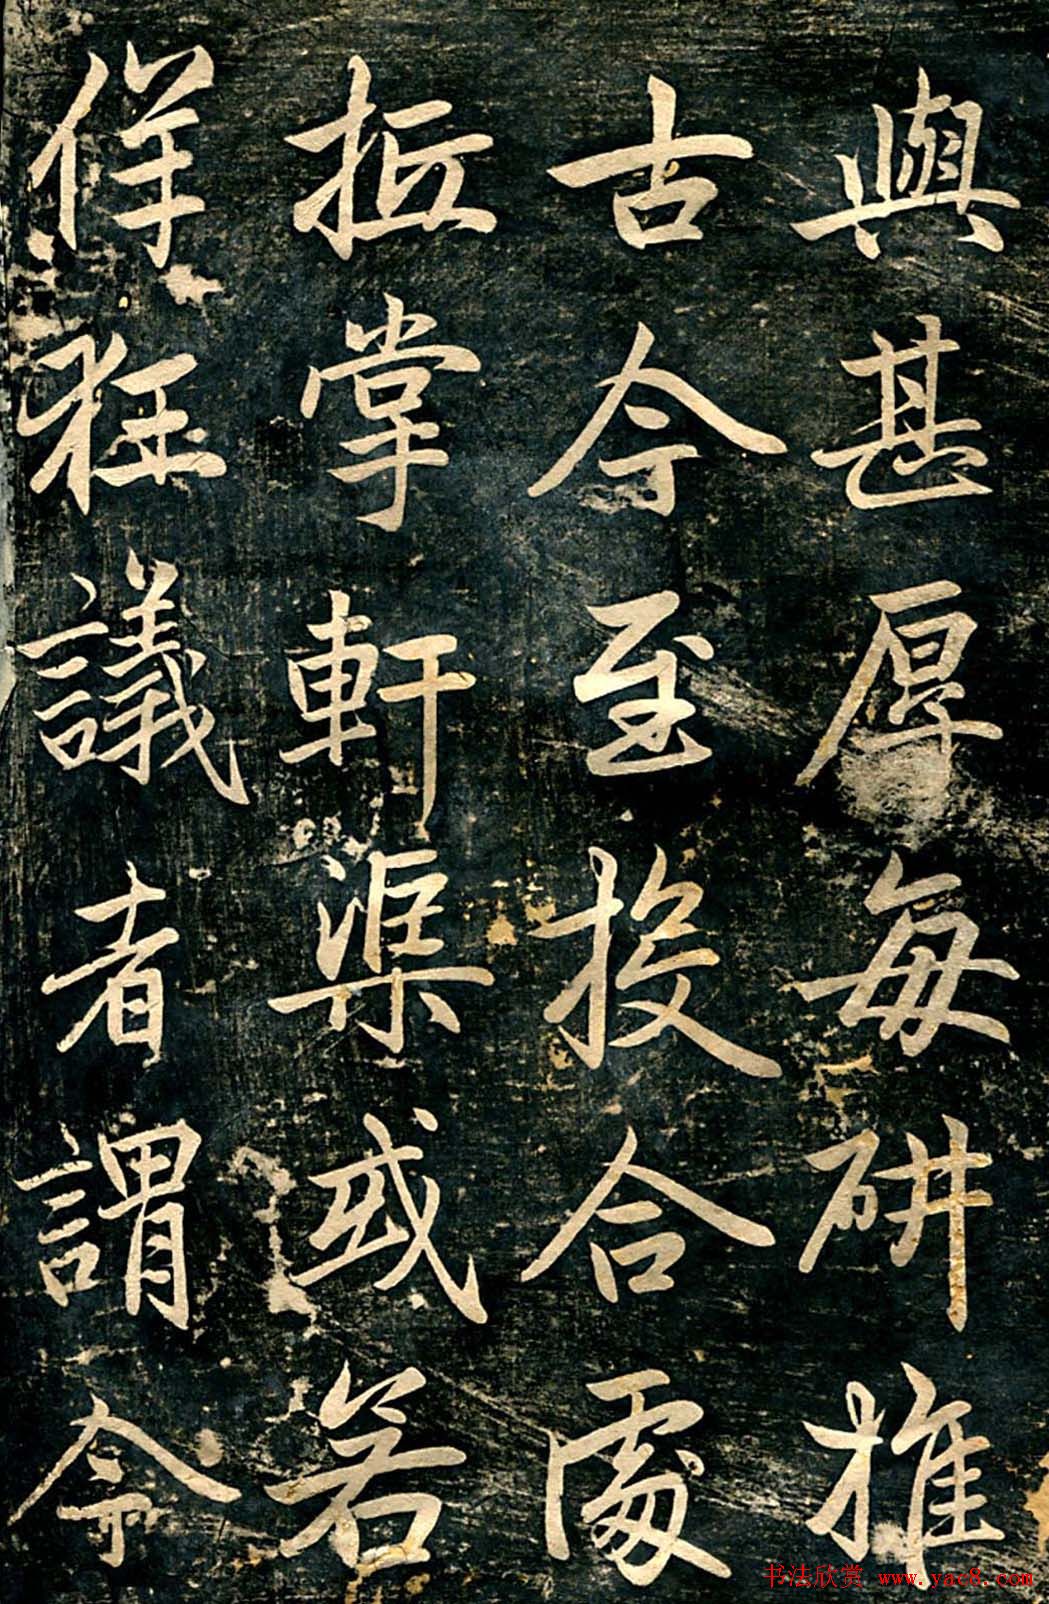 與甚厚每硏推
古今至投合處
抵掌軒渠或若
佯狂議者謂今
书法欣赏 www.yac8.com